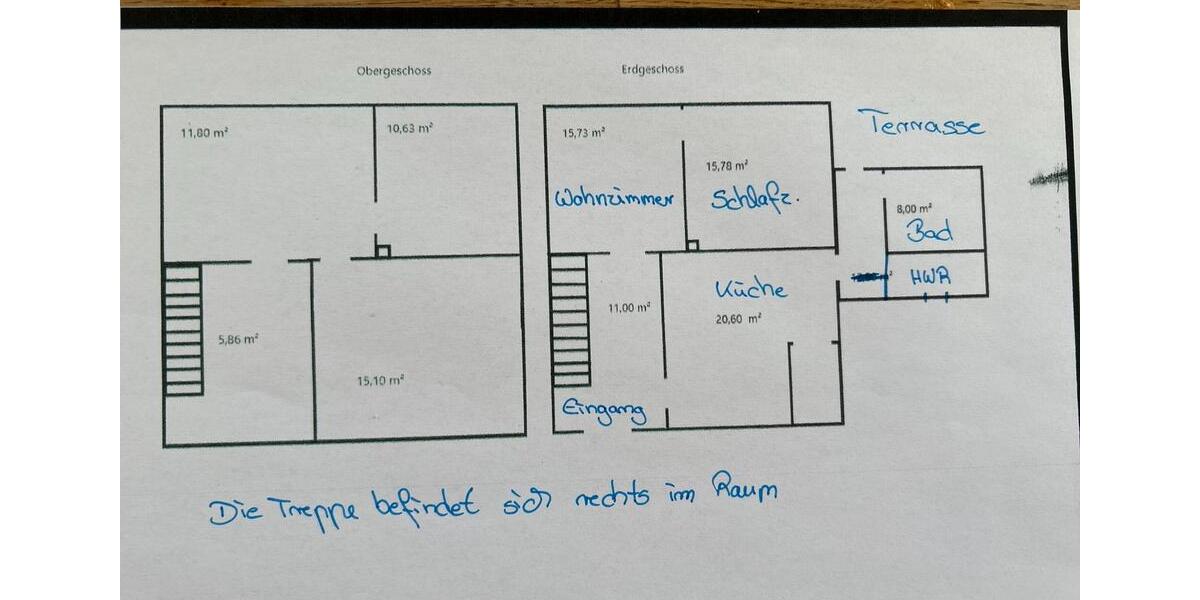 Obergeschoss
Erdgeschoss
11,80 m²
10,63 m²
15,73 m²
15,78 m²
Terrasse
Wohnzimmer
Schlafz.
8,00 m²
Bad
HWR
5,86 m²
11,00 m²
Küche
20,60 m²
15,10 m²
Eingang
Die Treppe befindet sich rechts im Raum